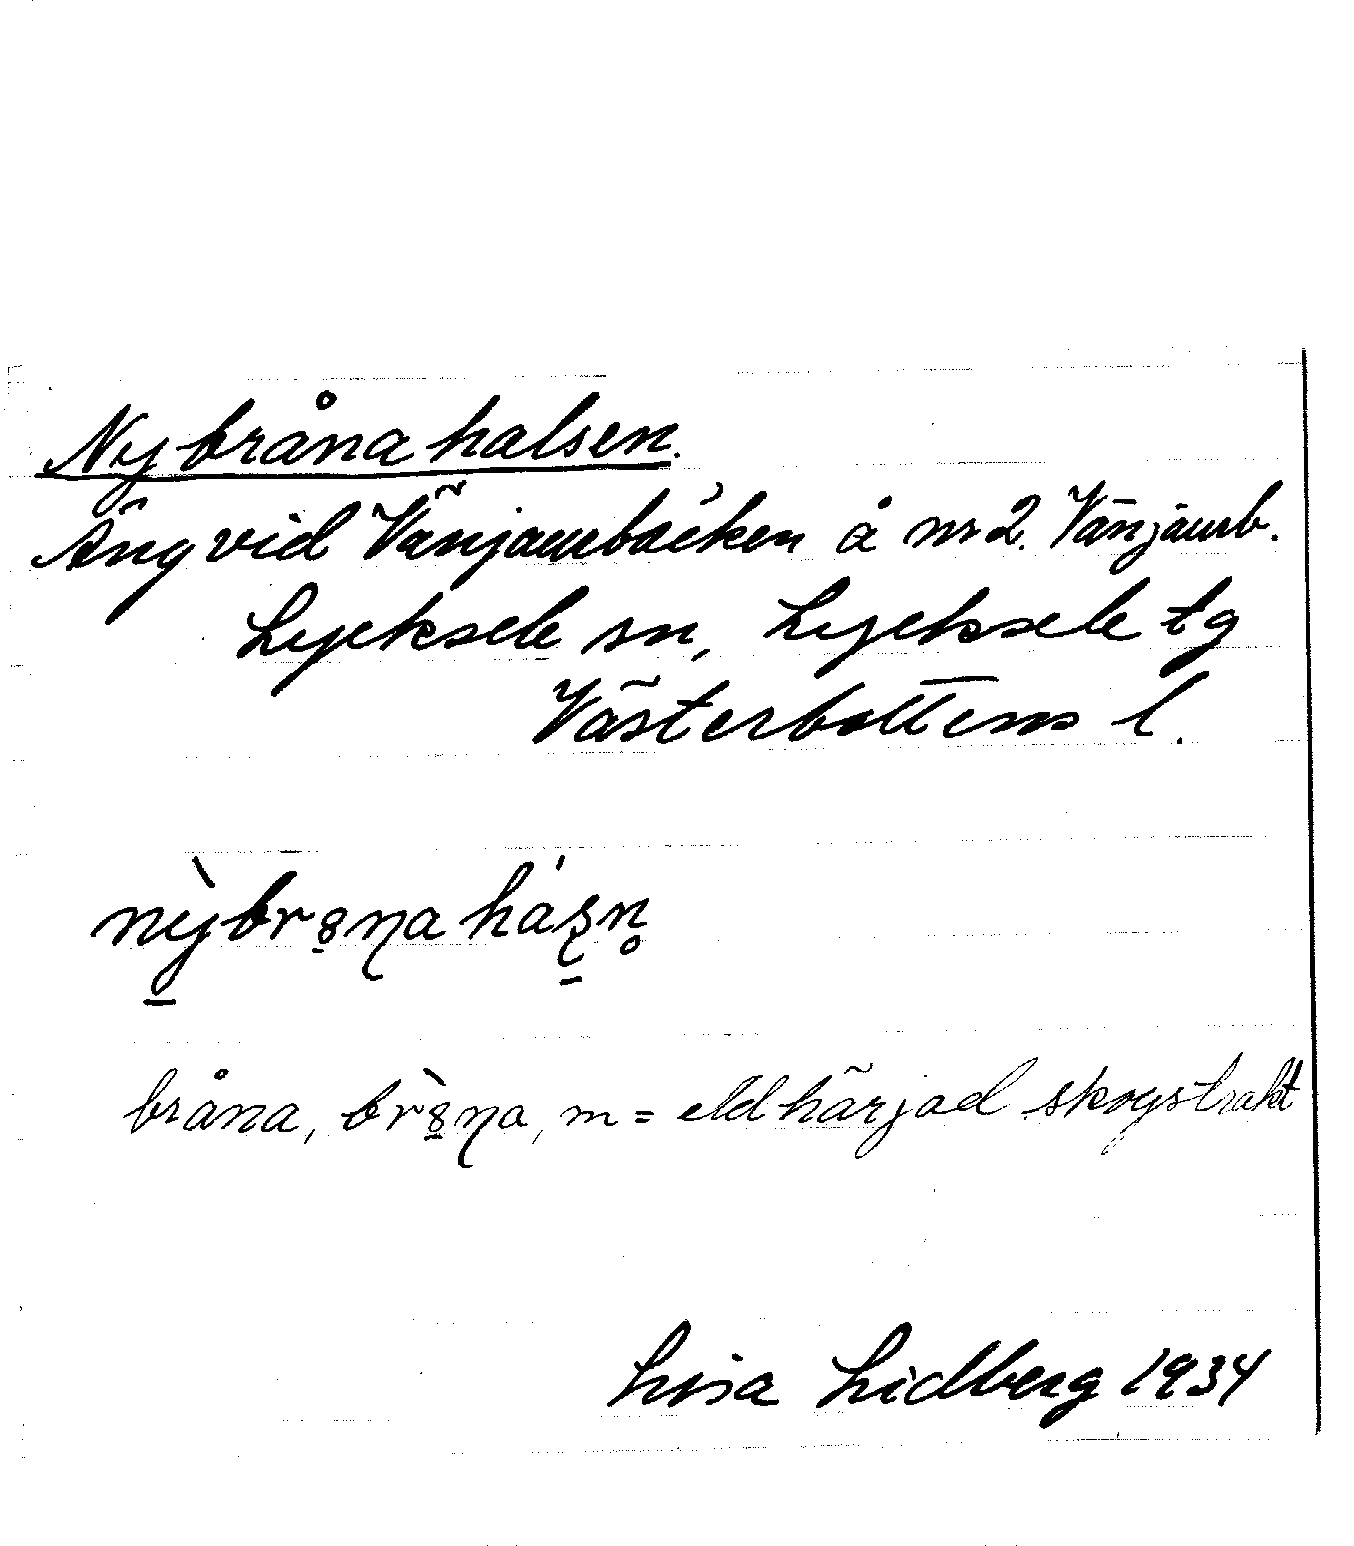 Nybrånahalsen.
Äng vid Vänjaurbäcken å nr 2. Vänjaurb.
Lycksele sn, Lycksele tg
Västerbottens l.
bråna, m = eldhärjad skogstrakt
Lisa Lidberg 1934